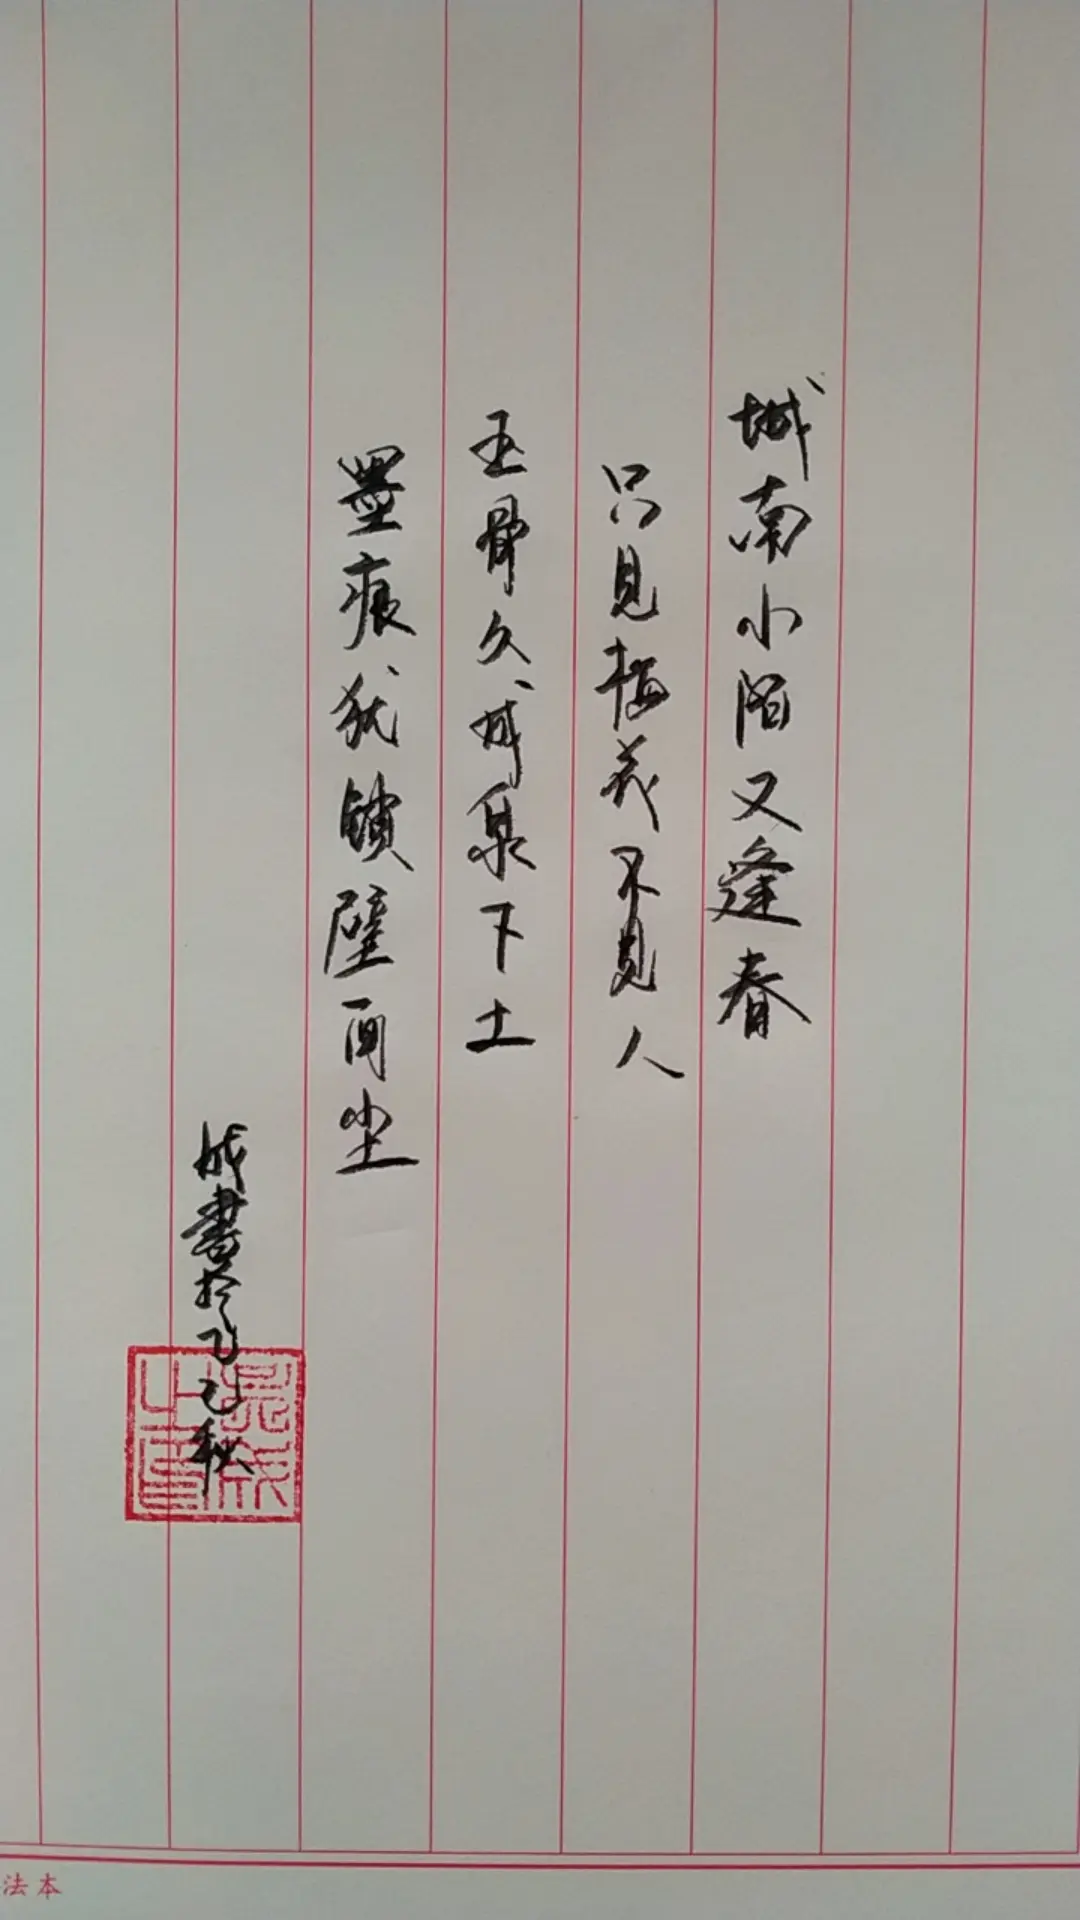 城南小陌又逢春
只见梅花不见人
玉骨久成泉下土
墨痕犹锁壁间尘
成書於乙巳秋
法本